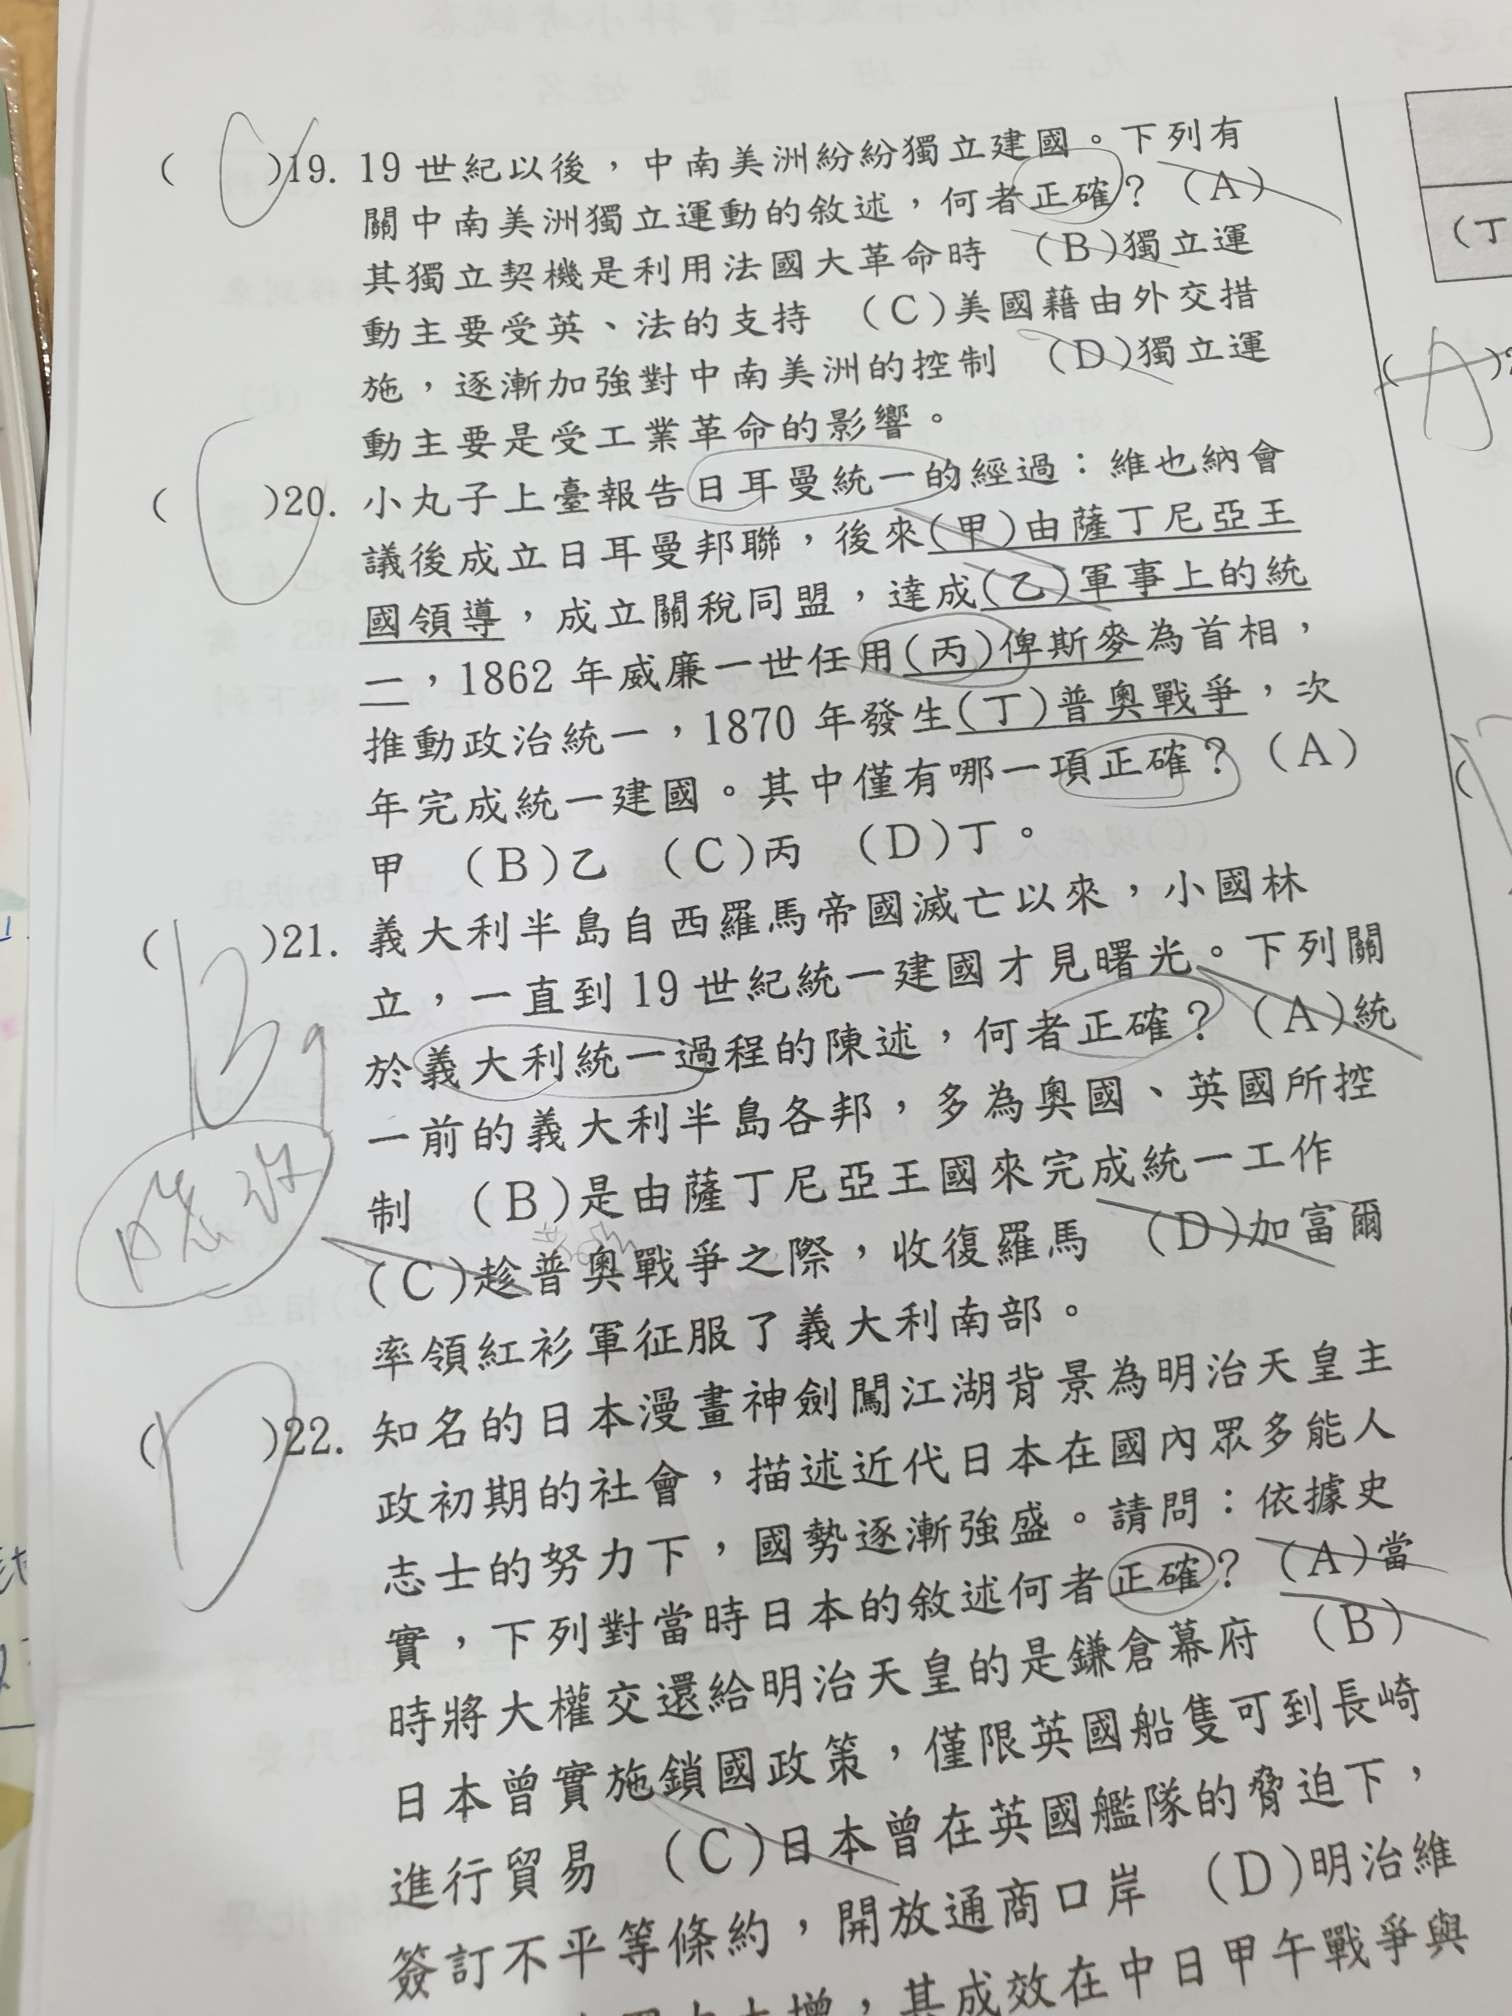 ( C )19. 19世紀以後，中南美洲紛紛獨立建國。下列有
關中南美洲獨立運動的敘述，何者正確？ (A)
其獨立契機是利用法國大革命時 (B)獨立運
動主要受英、法的支持 (C)美國藉由外交措
施，逐漸加強對中南美洲的控制 (D)獨立運
動主要是受工業革命的影響。
( C )20. 小丸子上臺報告日耳曼統一的經過：維也納會
議後成立日耳曼邦聯，後來(甲)由薩丁尼亞王
國領導，成立關稅同盟，達成(乙)軍事上的統
一，1862年威廉一世任用(丙)俾斯麥為首相，
推動政治統一，1870年發生(丁)普奧戰爭，次
年完成統一建國。其中僅有哪一項正確？ (A)
甲 (B)乙 (C)丙 (D)丁。
( B )21. 義大利半島自西羅馬帝國滅亡以來，小國林
立，一直到19世紀統一建國才見曙光。下列關
於義大利統一過程的陳述，何者正確？ (A)統
一前的義大利半島各邦，多為奧國、英國所控
制 (B)是由薩丁尼亞王國來完成統一工作
(C)趁普奧戰爭之際，收復羅馬 (D)加富爾
率領紅衫軍征服了義大利南部。
( D )22. 知名的日本漫畫神劍闖江湖背景為明治天皇主
政初期的社會，描述近代日本在國內眾多能人
志士的努力下，國勢逐漸強盛。請問：依據史
實，下列對當時日本的敘述何者正確？ (A)當
時將大權交還給明治天皇的是鎌倉幕府 (B)
日本曾實施鎖國政策，僅限英國船隻可到長崎
進行貿易 (C)日本曾在英國艦隊的脅迫下，
簽訂不平等條約，開放通商口岸 (D)明治維
其成效在中日甲午戰爭與
(丁